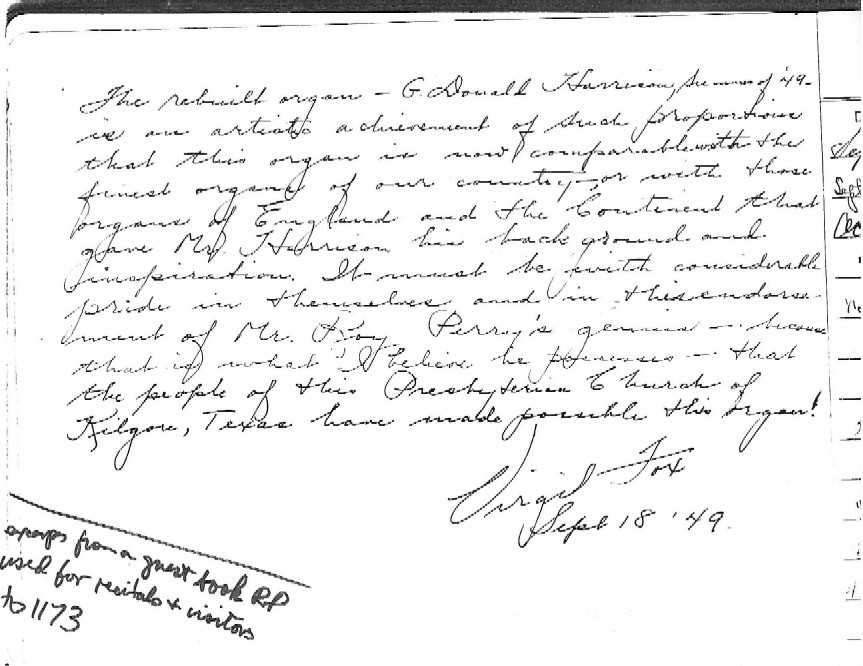 The rebuilt organ – G. Donald Harrison, Summer of '49 –
is an artistic achievement of such proportions
that this organ is now comparable with the
finest organs of our country – or with those
organs of England and the Continent that
gave Mr. Harrison his background and
inspiration. It must be with considerable
pride in themselves and in this endorse-
ment of Mr. Roy Perry's genius – because
that is what I believe he possesses – that
the people of this Presbyterian Church of
Kilgore, Texas have made possible this organ!
Virgil Fox
Sept 18 '49.
from a guest book RP
used for recitals + visitors
to 1173